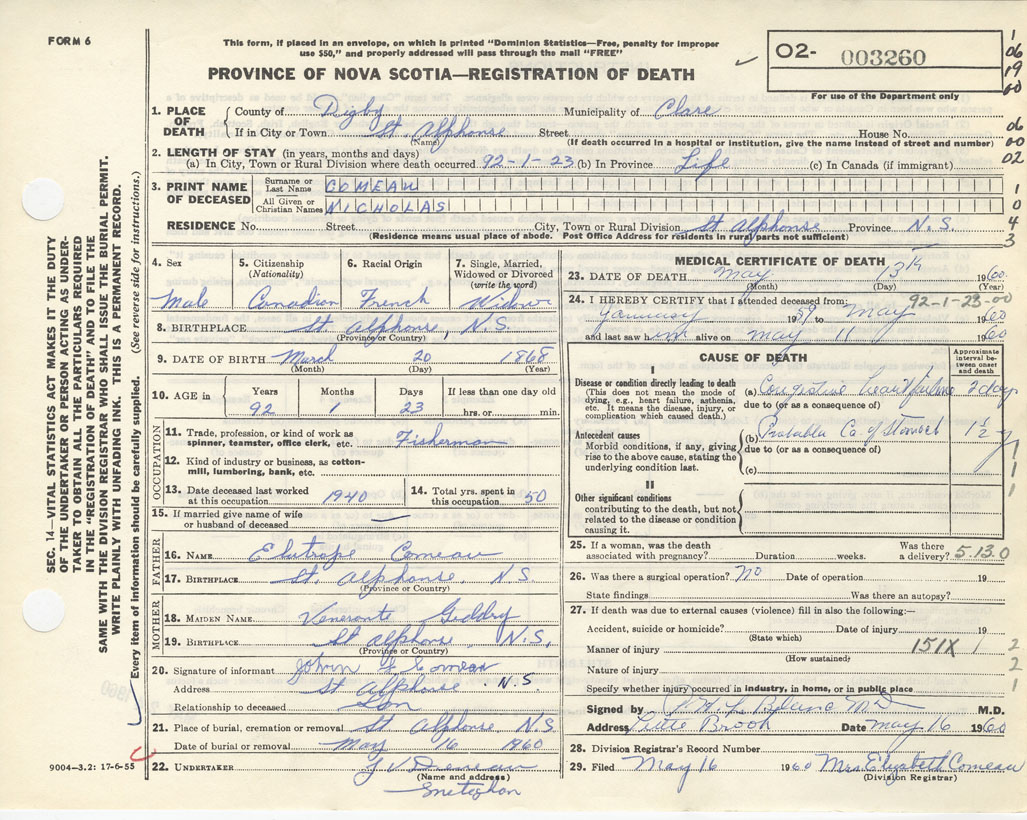 FORM 6
This form, if placed in an envelope, on which is printed "Dominion Statistics—Free, penalty for improper
use $50," and properly addressed will pass through the mail "FREE"
PROVINCE OF NOVA SCOTIA—REGISTRATION OF DEATH
02- 003260
For use of the Department only
1
06
19
60
06
00
02
1
0
4
3
SEC. 14—VITAL STATISTICS ACT MAKES IT THE DUTY
OF THE UNDERTAKER OR PERSON ACTING AS UNDER-
TAKER TO OBTAIN ALL THE PARTICULARS REQUIRED
IN THE "REGISTRATION OF DEATH" AND TO FILE THE
SAME WITH THE DIVISION REGISTRAR WHO SHALL ISSUE THE BURIAL PERMIT.
WRITE PLAINLY WITH UNFADING INK. THIS IS A PERMANENT RECORD.
Every item of information should be carefully supplied. (See reverse side for instructions.)
1. PLACE OF DEATH County of Digby Municipality of Clare
If in City or Town St. Alphonse Street House No.
(Name) (If death occurred in a hospital or institution, give the name instead of street and number)
2. LENGTH OF STAY (in years, months and days)
(a) In City, Town or Rural Division where death occurred 92-1-23 (b) In Province Life (c) In Canada (if immigrant)
3. PRINT NAME OF DECEASED Surname or Last Name COMEAU
All Given or Christian Names NICHOLAS
RESIDENCE No. Street City, Town or Rural Division St Alphonse Province N.S.
(Residence means usual place of abode. Post Office Address for residents in rural parts not sufficient)
4. Sex Male
5. Citizenship (Nationality) Canadian
6. Racial Origin French
7. Single, Married, Widowed or Divorced (write the word) Widower
8. BIRTHPLACE St Alphonse, N.S.
(Province or Country)
9. DATE OF BIRTH March 20 1868
(Month) (Day) (Year)
10. AGE in Years 92 Months 1 Days 23 If less than one day hrs. or min.
OCCUPATION
11. Trade, profession, or kind of work as spinner, teamster, office clerk, etc. Fisherman
12. Kind of industry or business, as cotton-mill, lumbering, bank, etc.
13. Date deceased last worked at this occupation 1940
14. Total yrs. spent in this occupation 50
15. If married give name of wife or husband of deceased —
FATHER
16. NAME Comeau
17. BIRTHPLACE St. Alphonse, N.S.
(Province or Country)
MOTHER
18. MAIDEN NAME
19. BIRTHPLACE St Alphonse N.S.
(Province or Country)
20. Signature of informant Comeau
Address St Alphonse N.S
Relationship to deceased Son
21. Place of burial, cremation or removal St Alphonse N.S
Date of burial or removal May 16 1960
22. UNDERTAKER
(Name and address)
9004—3.2: 17-6-55
MEDICAL CERTIFICATE OF DEATH
23. DATE OF DEATH May 13th 1960
(Month) (Day)
92-1-23-00
24. I HEREBY CERTIFY that I attended deceased from:
January 1959 to May 1960
and last saw him alive on May 11 1960
CAUSE OF DEATH
Approximate interval between onset and death
I
Disease or condition directly leading to death
(This does not mean the mode of
dying, e.g., heart failure, asthenia,
etc. It means the disease, injury, or
complication which caused death.)
(a) Congestive heart failure 2 days
due to (or as a consequence of)
Antecedent causes
Morbid conditions, if any, giving
rise to the above cause, stating the
underlying condition last.
(b) Probable Ca of Stomach 1 1/2 y
due to (or as a consequence of)
(c)
II
Other significant conditions
contributing to the death, but not
related to the disease or condition
causing it.
1
1
1
25. If a woman, was the death associated with pregnancy? Duration weeks. Was there a delivery?
5.13.0
26. Was there a surgical operation? No Date of operation 19
State findings Was there an autopsy?
27. If death was due to external causes (violence) fill in also the following:—
Accident, suicide or homicide? Date of injury 19
(State which)
Manner of injury 151X 1 2
(How sustained)
Nature of injury 2
Specify whether injury occurred in industry, in home, or in public place 1
Signed by M.D.
Address Little Brook Date May 16 1960
28. Division Registrar's Record Number
29. Filed May 16 1960 Mrs. Elizabeth Comeau
(Division Registrar)